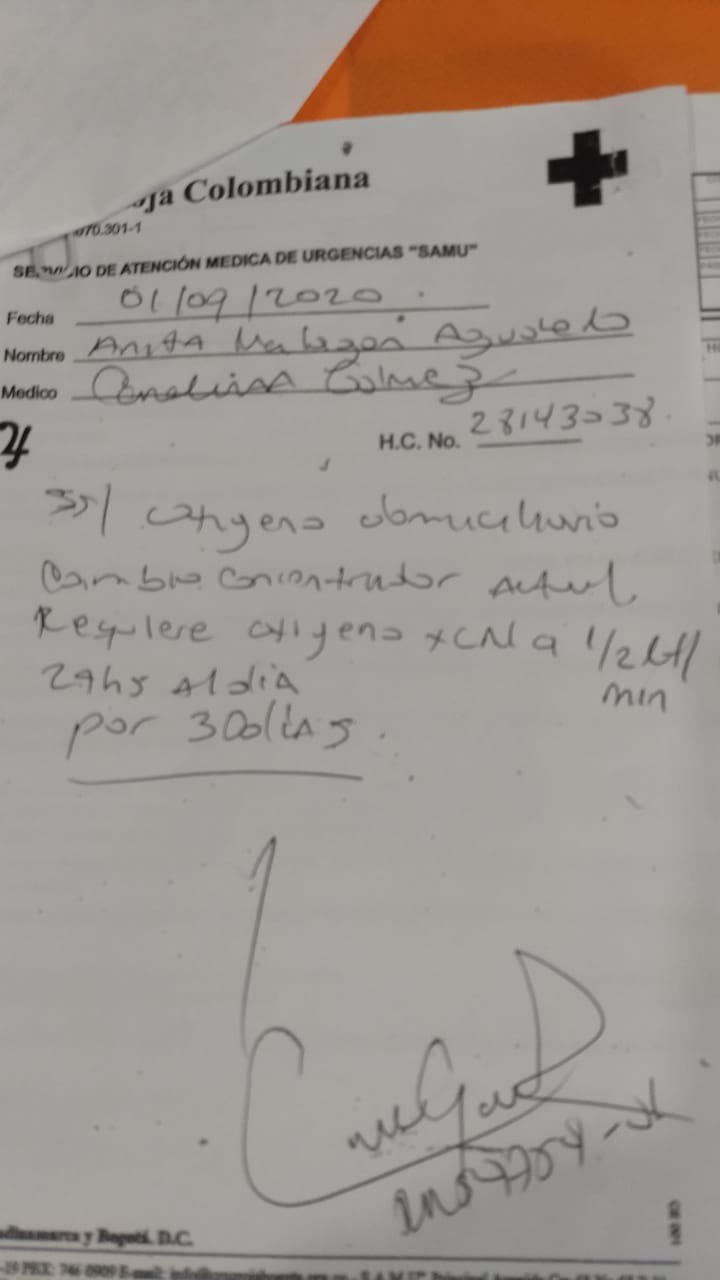 oja Colombiana
070.301-1
SERVICIO DE ATENCIÓN MEDICA DE URGENCIAS "SAMU"
Fecha 01/09/2020.
Nombre Anita Malagon Agudelo
Medico Carolina Gomez
H.C. No. 28143038.
SS/ oxigeno domiciliario
Cambio Concentrador Actual
Requiere oxigeno x CN a 1/2 Lt/
min
24hs Al dia
por 30 dias.
dinamarca y Bogotá. D.C.
-19 PBX: 746 0909 E-mail: